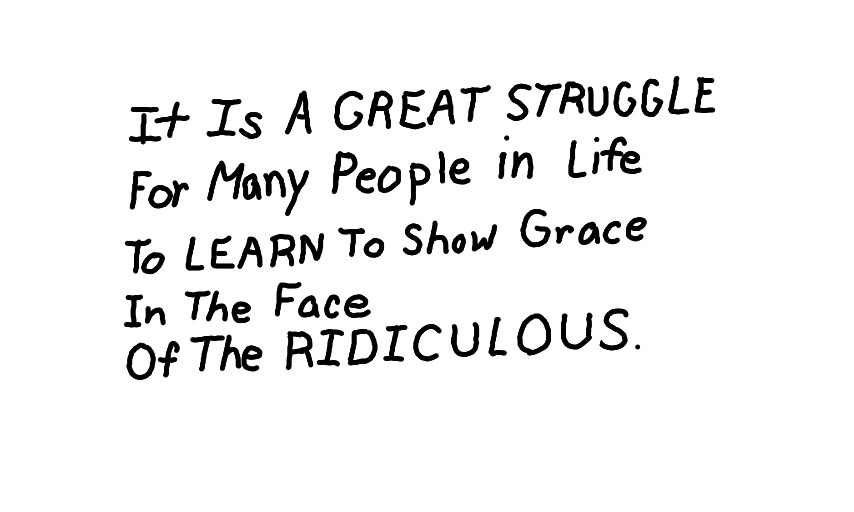 It Is A GREAT STRUGGLE
For Many People in Life
To LEARN To Show Grace
In The Face
Of The RIDICULOUS.